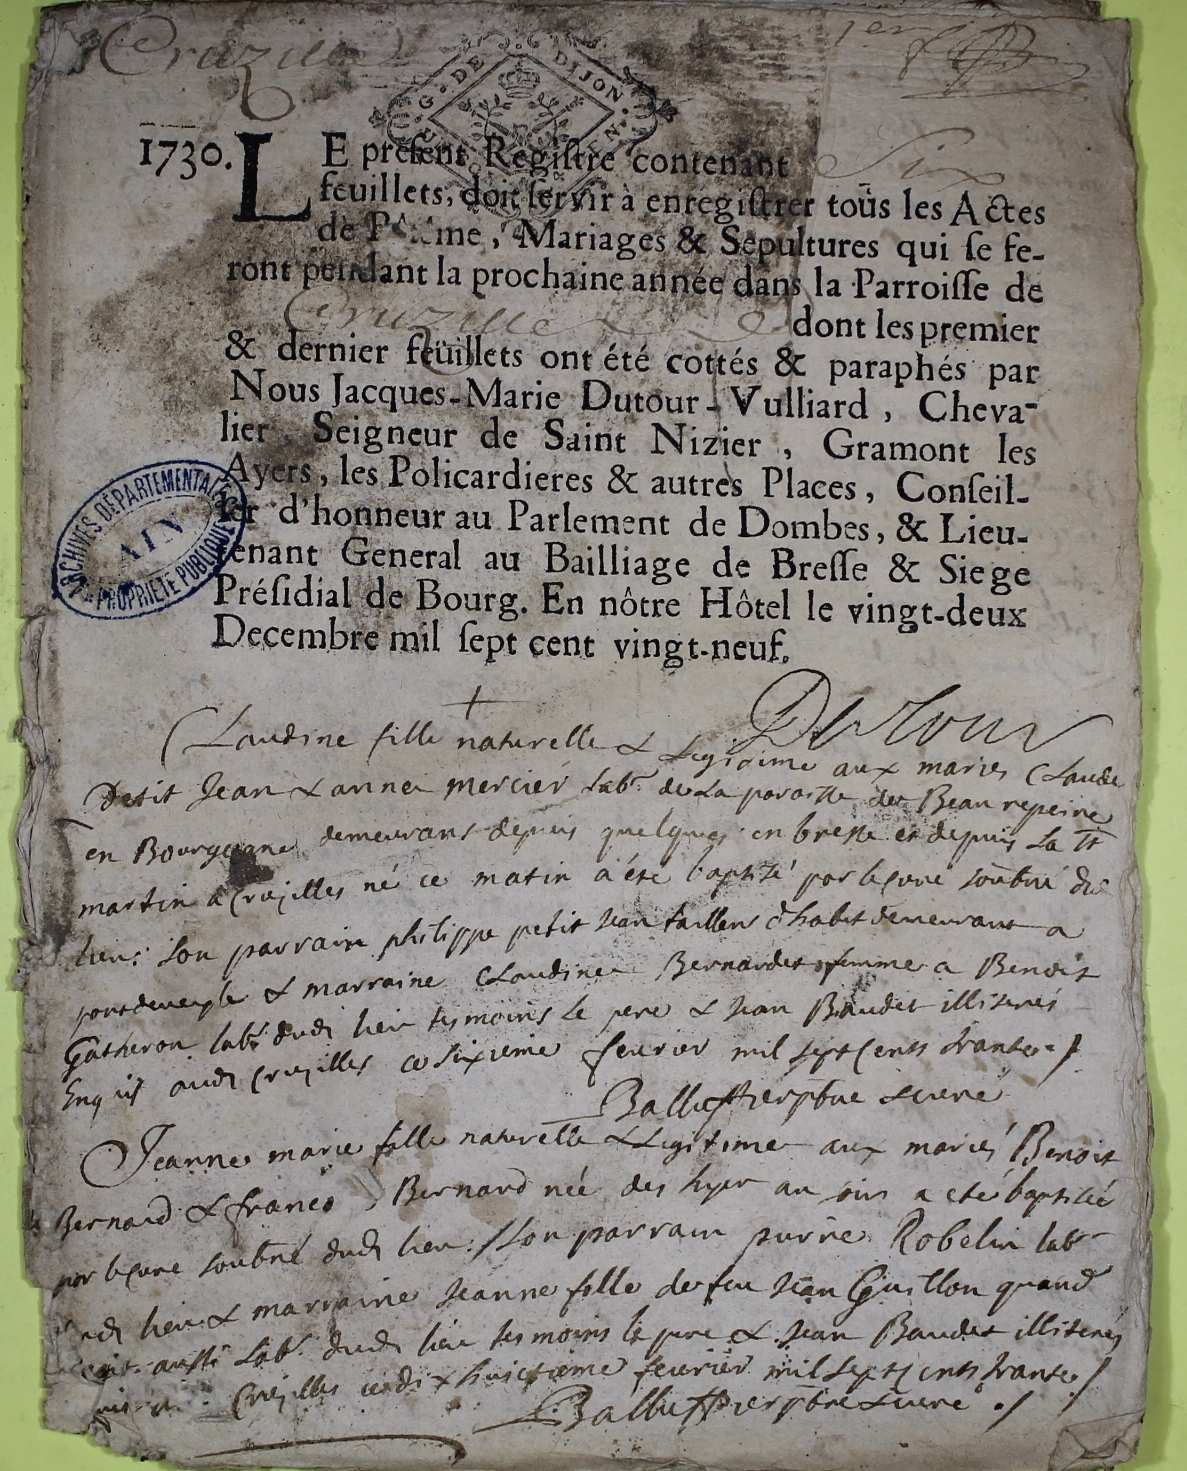 Cruzille
1er
G. DE DIJON
1730. LE preſent Regiſtre contenant Six
feuillets, doit ſervir à enregiſtrer toũs les Actes
de me, Mariages & Sepultures qui ſe fe-
ront pendant la prochaine année dans la Parroiſſe de
Cruzille dont les premier
& dernier feüillets ont été cottés & paraphés par
Nous Jacques-Marie Dutour-Vulliard, Cheva-
lier Seigneur de Saint Nizier, Gramont les
Ayers, les Policardieres & autres Places, Conſeil-
ler d'honneur au Parlement de Dombes, & Lieu-
tenant General au Bailliage de Breſſe & Siege
Préſidial de Bourg. En nôtre Hôtel le vingt-deux
Decembre mil ſept cent vingt-neuf.
ARCHIVES DEPARTEMENTALES
AIN
PROPRIETE PUBLIQUE
Dutour
Claudine fille naturelle & Legitime aux mariés Claude
Petit Jean & anne mercier labr de La paroisse de Beaurepaire
en Bourgogne demeurant depuis quelques en bresse et depuis La St
martin a Crusilles né ce matin a été baptisé par le curé soubné du
lieu: son parrain philippe petit Jean tailleur d'habit demeurant a
pontdeveyle & marraine Claudine Bernardet femme a Benoit
Gatheron labr dudt lieu tesmoins le pere & Jean Baudet illiterés
Enquis audt Crusilles ce sixieme fevrier mil sept cents trante ./
Ballieffier pbre & curé
Jeanne marie fille naturelle & Legitime aux mariés Benoit
Bernard & france Bernard née des hyer au soir a eté baptisée
par le curé soubné dudt lieu. Son parrain pierre Robelin labr
dudt lieu & marraine Jeanne fille de feu Jean Guillon quand
vivoit aussi Labr dudt lieu tesmoins le pere & Jean Baudet illiterés
Crusilles ce dix huictieme fevrier mil sept cents trante ./
Ballieffier pbre & curé ./